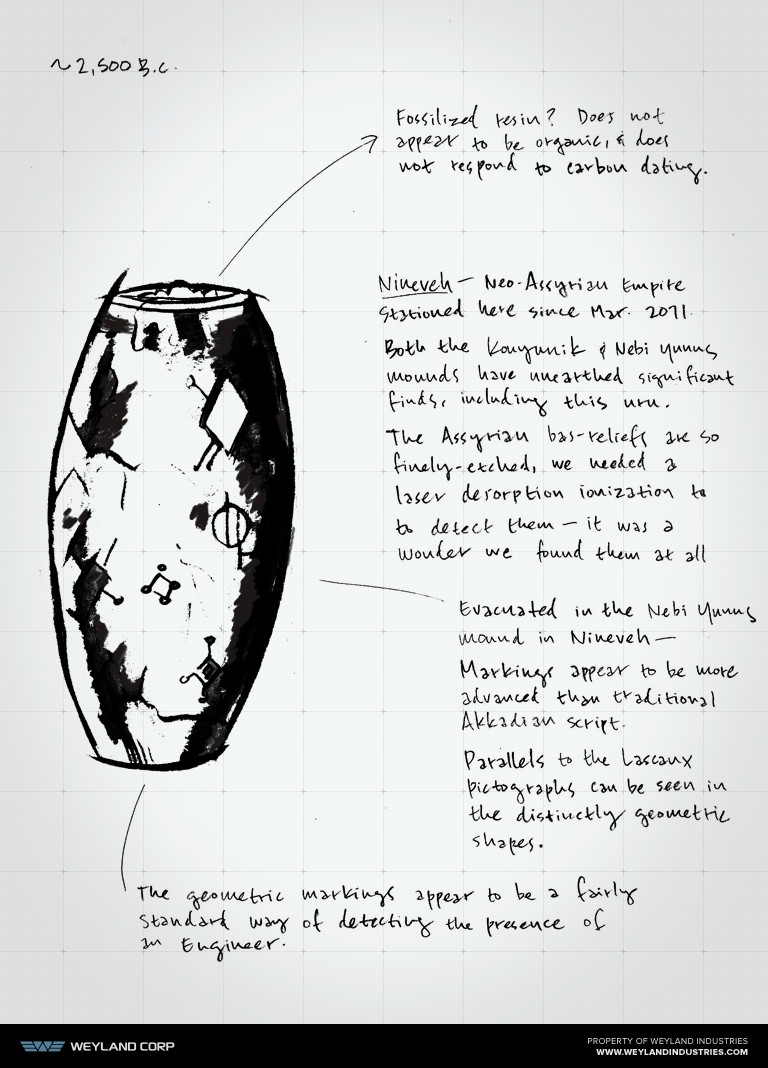 ~2,500 B.C.
Fossilized resin? Does not
appear to be organic, & does
not respond to carbon dating.
Nineveh — Neo-Assyrian Empire
Stationed here since Mar. 2071.
Both the Kouyunik & Nebi Yunus
mounds have unearthed significant
finds, including this urn.
The Assyrian bas-reliefs are so
finely-etched, we needed a
laser desorption ionization to
to detect them — it was a
wonder we found them at all
Evacuated in the Nebi Yunus
mound in Nineveh —
Markings appear to be more
advanced than traditional
Akkadian script.
Parallels to the Lascaux
pictographs can be seen in
the distinctly geometric
shapes.
The geometric markings appear to be a fairly
standard way of detecting the presence of
an Engineer.
WEYLAND CORP
PROPERTY OF WEYLAND INDUSTRIES
WWW.WEYLANDINDUSTRIES.COM